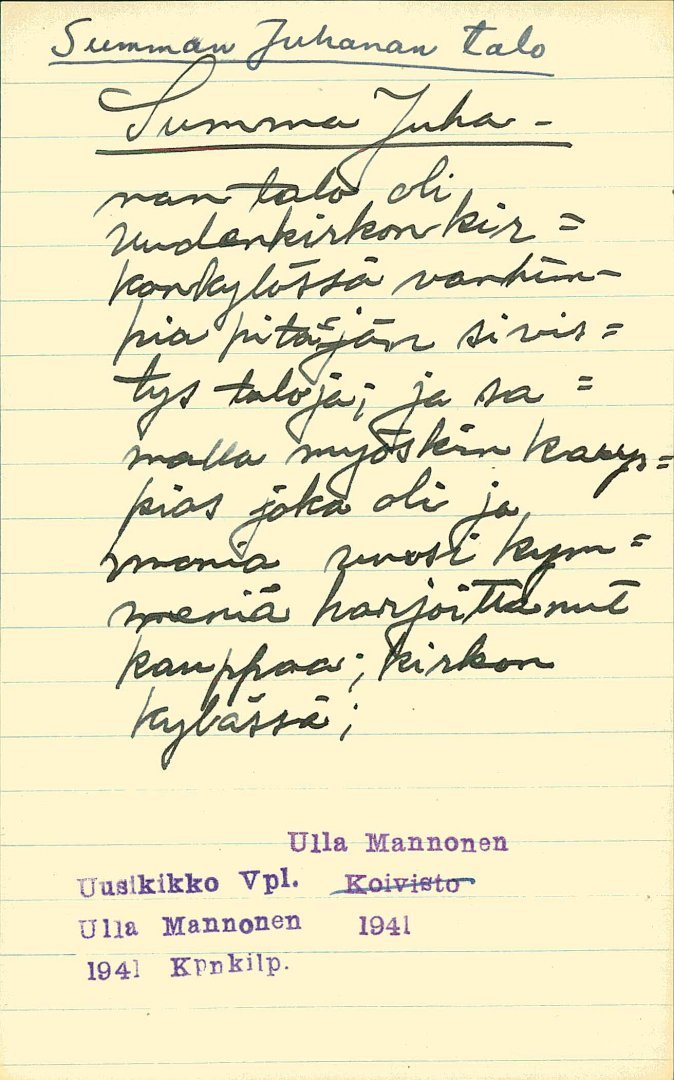 Summan Juhanan talo
Summa Juha-
nan talo oli
Uudenkirkon kir=
konkylässä vanhim-
pia pitäjän sivis=
tys taloja; ja sa=
malla myöskin kaup=
pias joka oli ja
monia vuosi kym=
meniä harjoittanut
kauppaa; kirkon
kylässä;
Ulla Mannonen
Uusikikko Vpl. Koivisto
Ulla Mannonen 1941
1941 Kpnkilp.